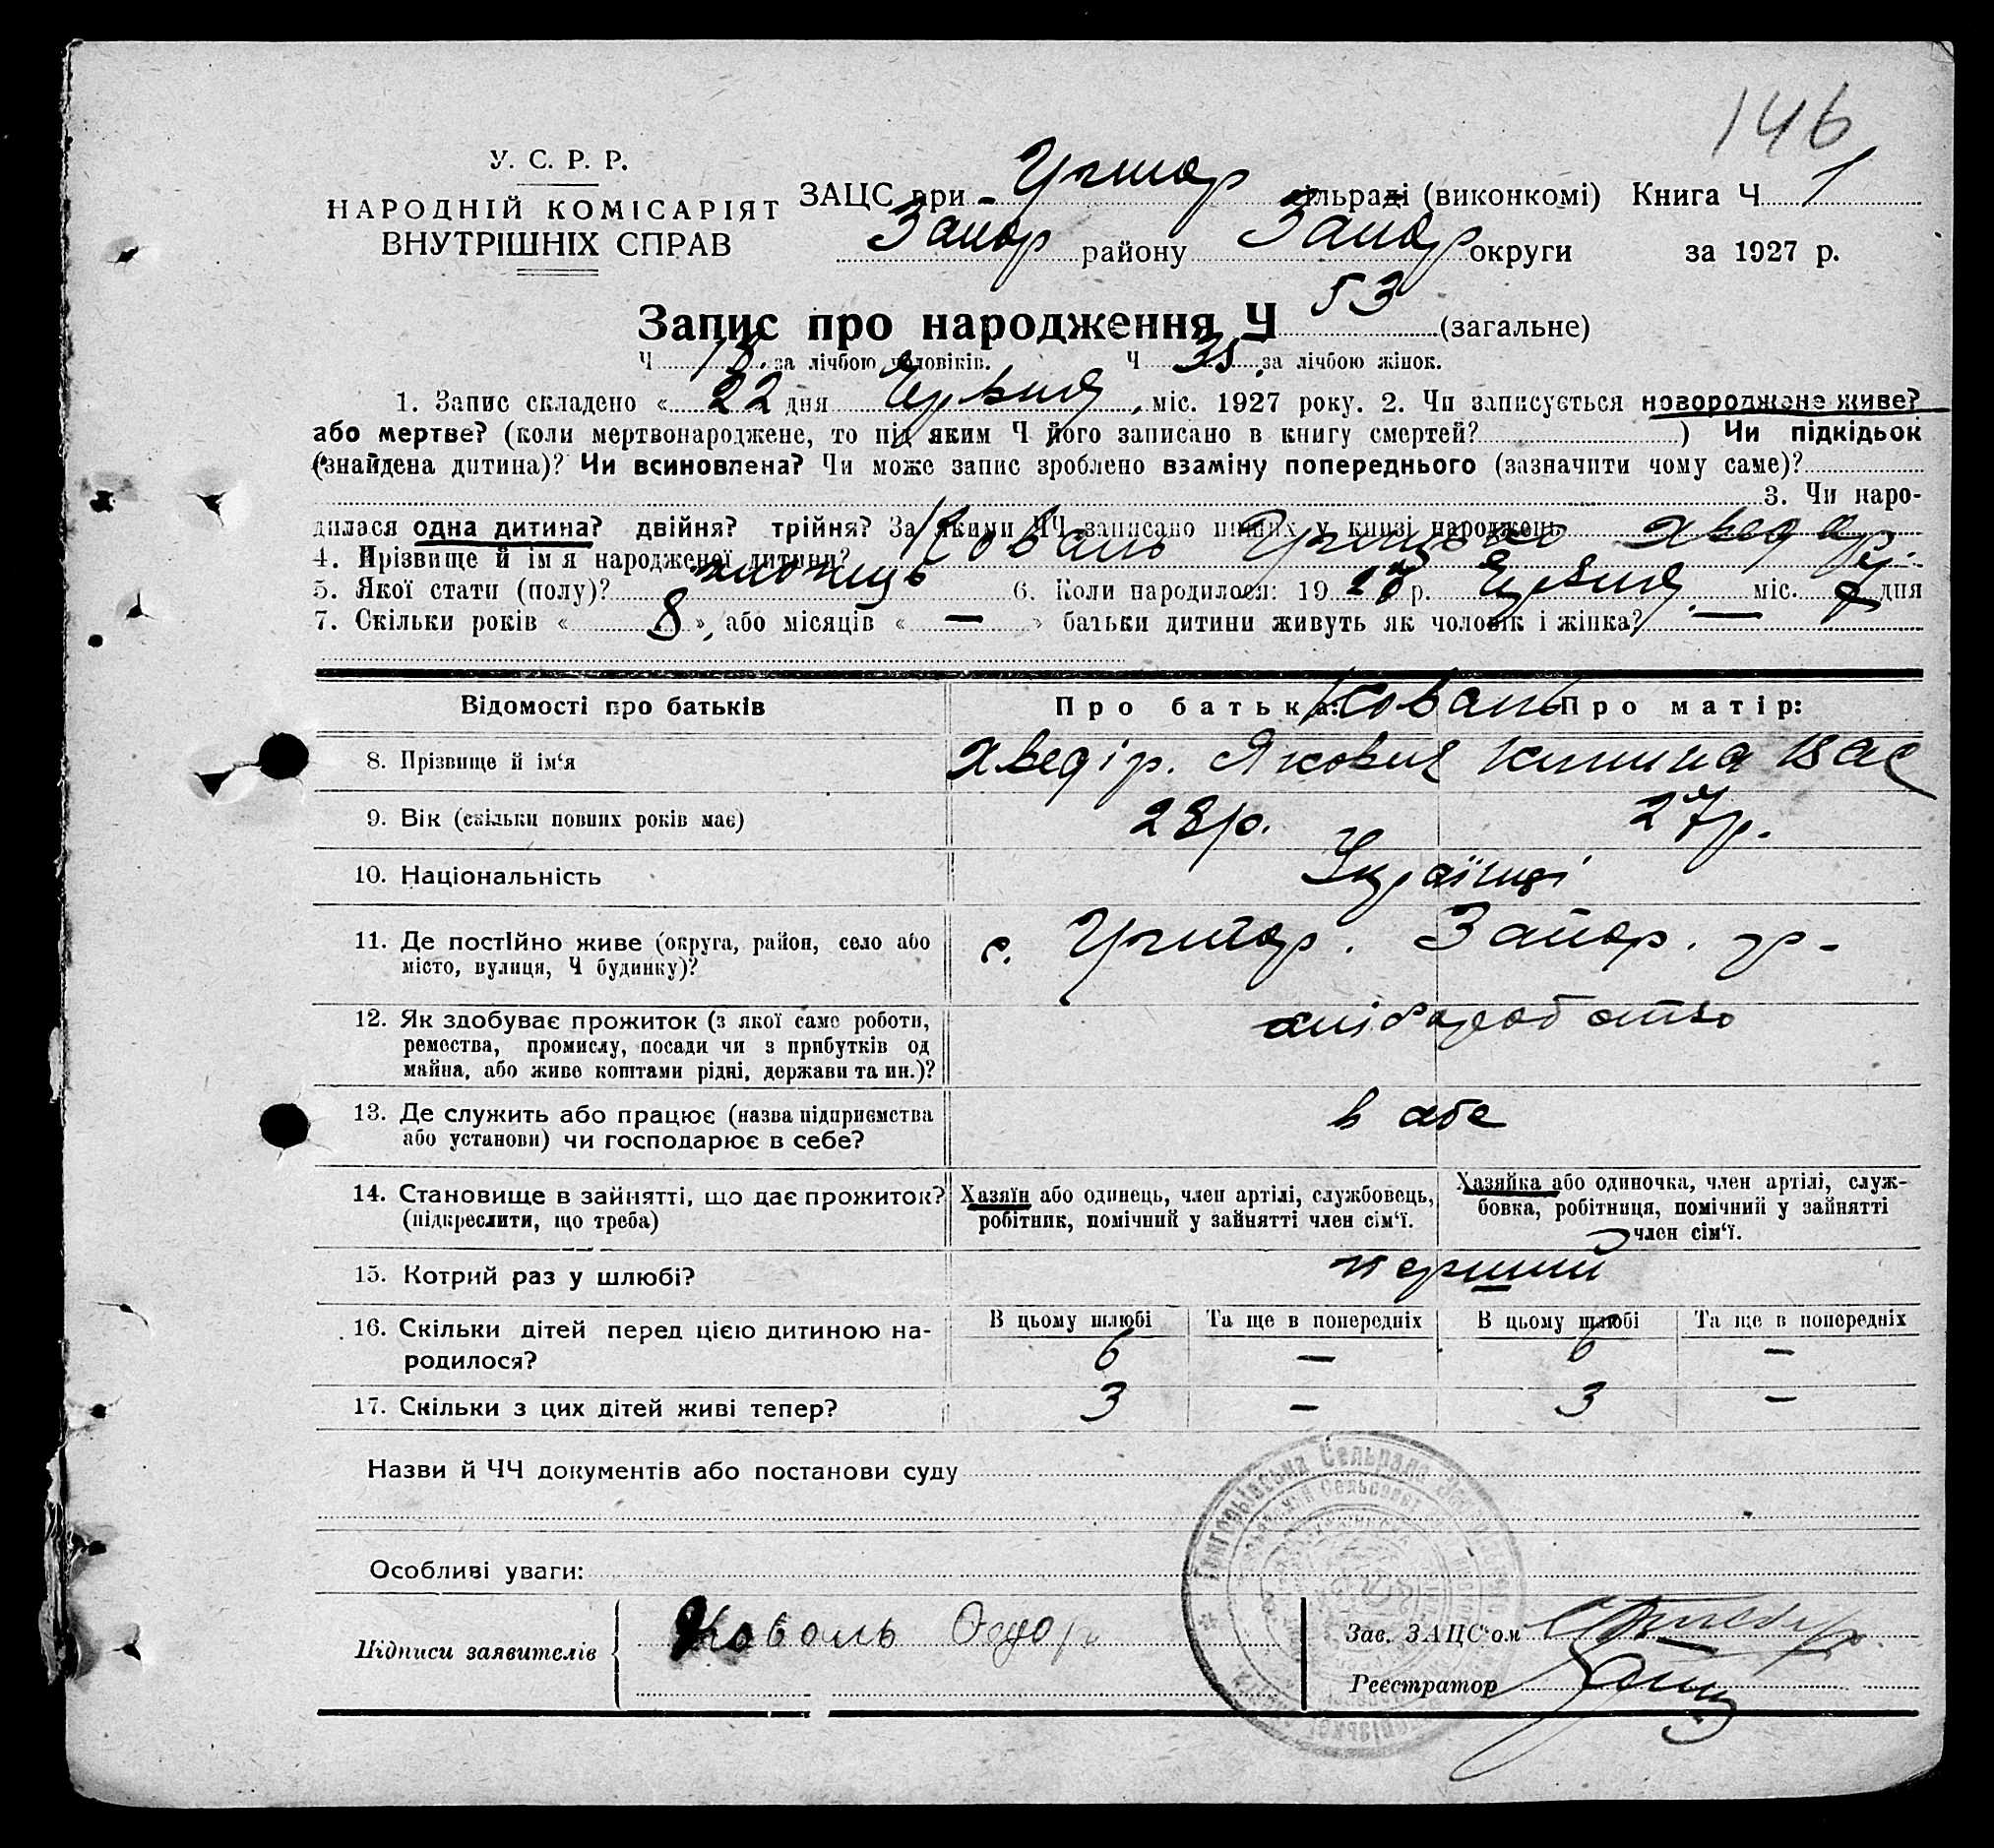 146
У. С. Р. Р.
НАРОДНІЙ КОМІСАРІЯТ
ВНУТРІШНІХ СПРАВ
ЗАЦС при Григор сільраді (виконкомі) Книга Ч 1
Запор району Запор округи за 1927 р.
Запис про народження Ч 53 (загальне)
Ч 18 за лічбою чоловіків. Ч 35 за лічбою жінок.
1. Запис складено « 22 дня Червня міс. 1927 року. 2. Чи записується новороджене живе?
або мертве? (коли мертвонароджене, то під яким Ч його записано в книгу смертей? ) Чи підкідьок
(знайдена дитина)? Чи всиновлена? Чи може запис зроблено взаміну попереднього (зазначити чому саме)?
3. Чи наро-
дилася одна дитина? двійня? трійня? За якими ЧЧ записано инших у книзі народжень
4. Прізвище й ім'я народженої дитини? Коваль Грицько Хведор
5. Якої стати (полу)? хлопець 6. Коли народилося: 1927 р. Червня міс. дня
7. Скільки років « 8 », або місяців « — » батьки дитини живуть як чоловік і жінка? —
Відомості про батьків
Про батька: Коваль Про матір:
8. Прізвище й ім'я Хведір. Якович Килина Вас
9. Вік (скільки повних років має) 28р. 27р.
10. Національність Українці
11. Де постійно живе (округа, район, село або
місто, вулиця, Ч будинку)? с. Григор. Запор. р-
12. Як здобуває прожиток (з якої саме роботи,
ремества, промислу, посади чи з прибутків од
майна, або живе коштами рідні, держави та ин.)? хліборобство
13. Де служить або працює (назва підприємства
або установи) чи господарює в себе? в себе
14. Становище в зайнятті, що дає прожиток?
(підкреслити, що треба)
Хазяїн або одинець, член артілі, службовець,
робітник, помічний у зайнятті член сім'ї.
Хазяйка або одиночка, член артілі, служ-
бовка, робітниця, помічний у зайнятті
член сім'ї.
15. Котрий раз у шлюбі? перший
В цьому шлюбі Та ще в попередніх В цьому шлюбі Та ще в попередніх
16. Скільки дітей перед цією дитиною на-
родилося? 6 — 6 —
17. Скільки з цих дітей живі тепер? 3 — 3 —
Назви й ЧЧ документів або постанови суду
Григорьівська Сельрада
Особливі уваги:
Підписи заявителів Коваль Федор
Зав. ЗАЦС'ом
Реєстратор